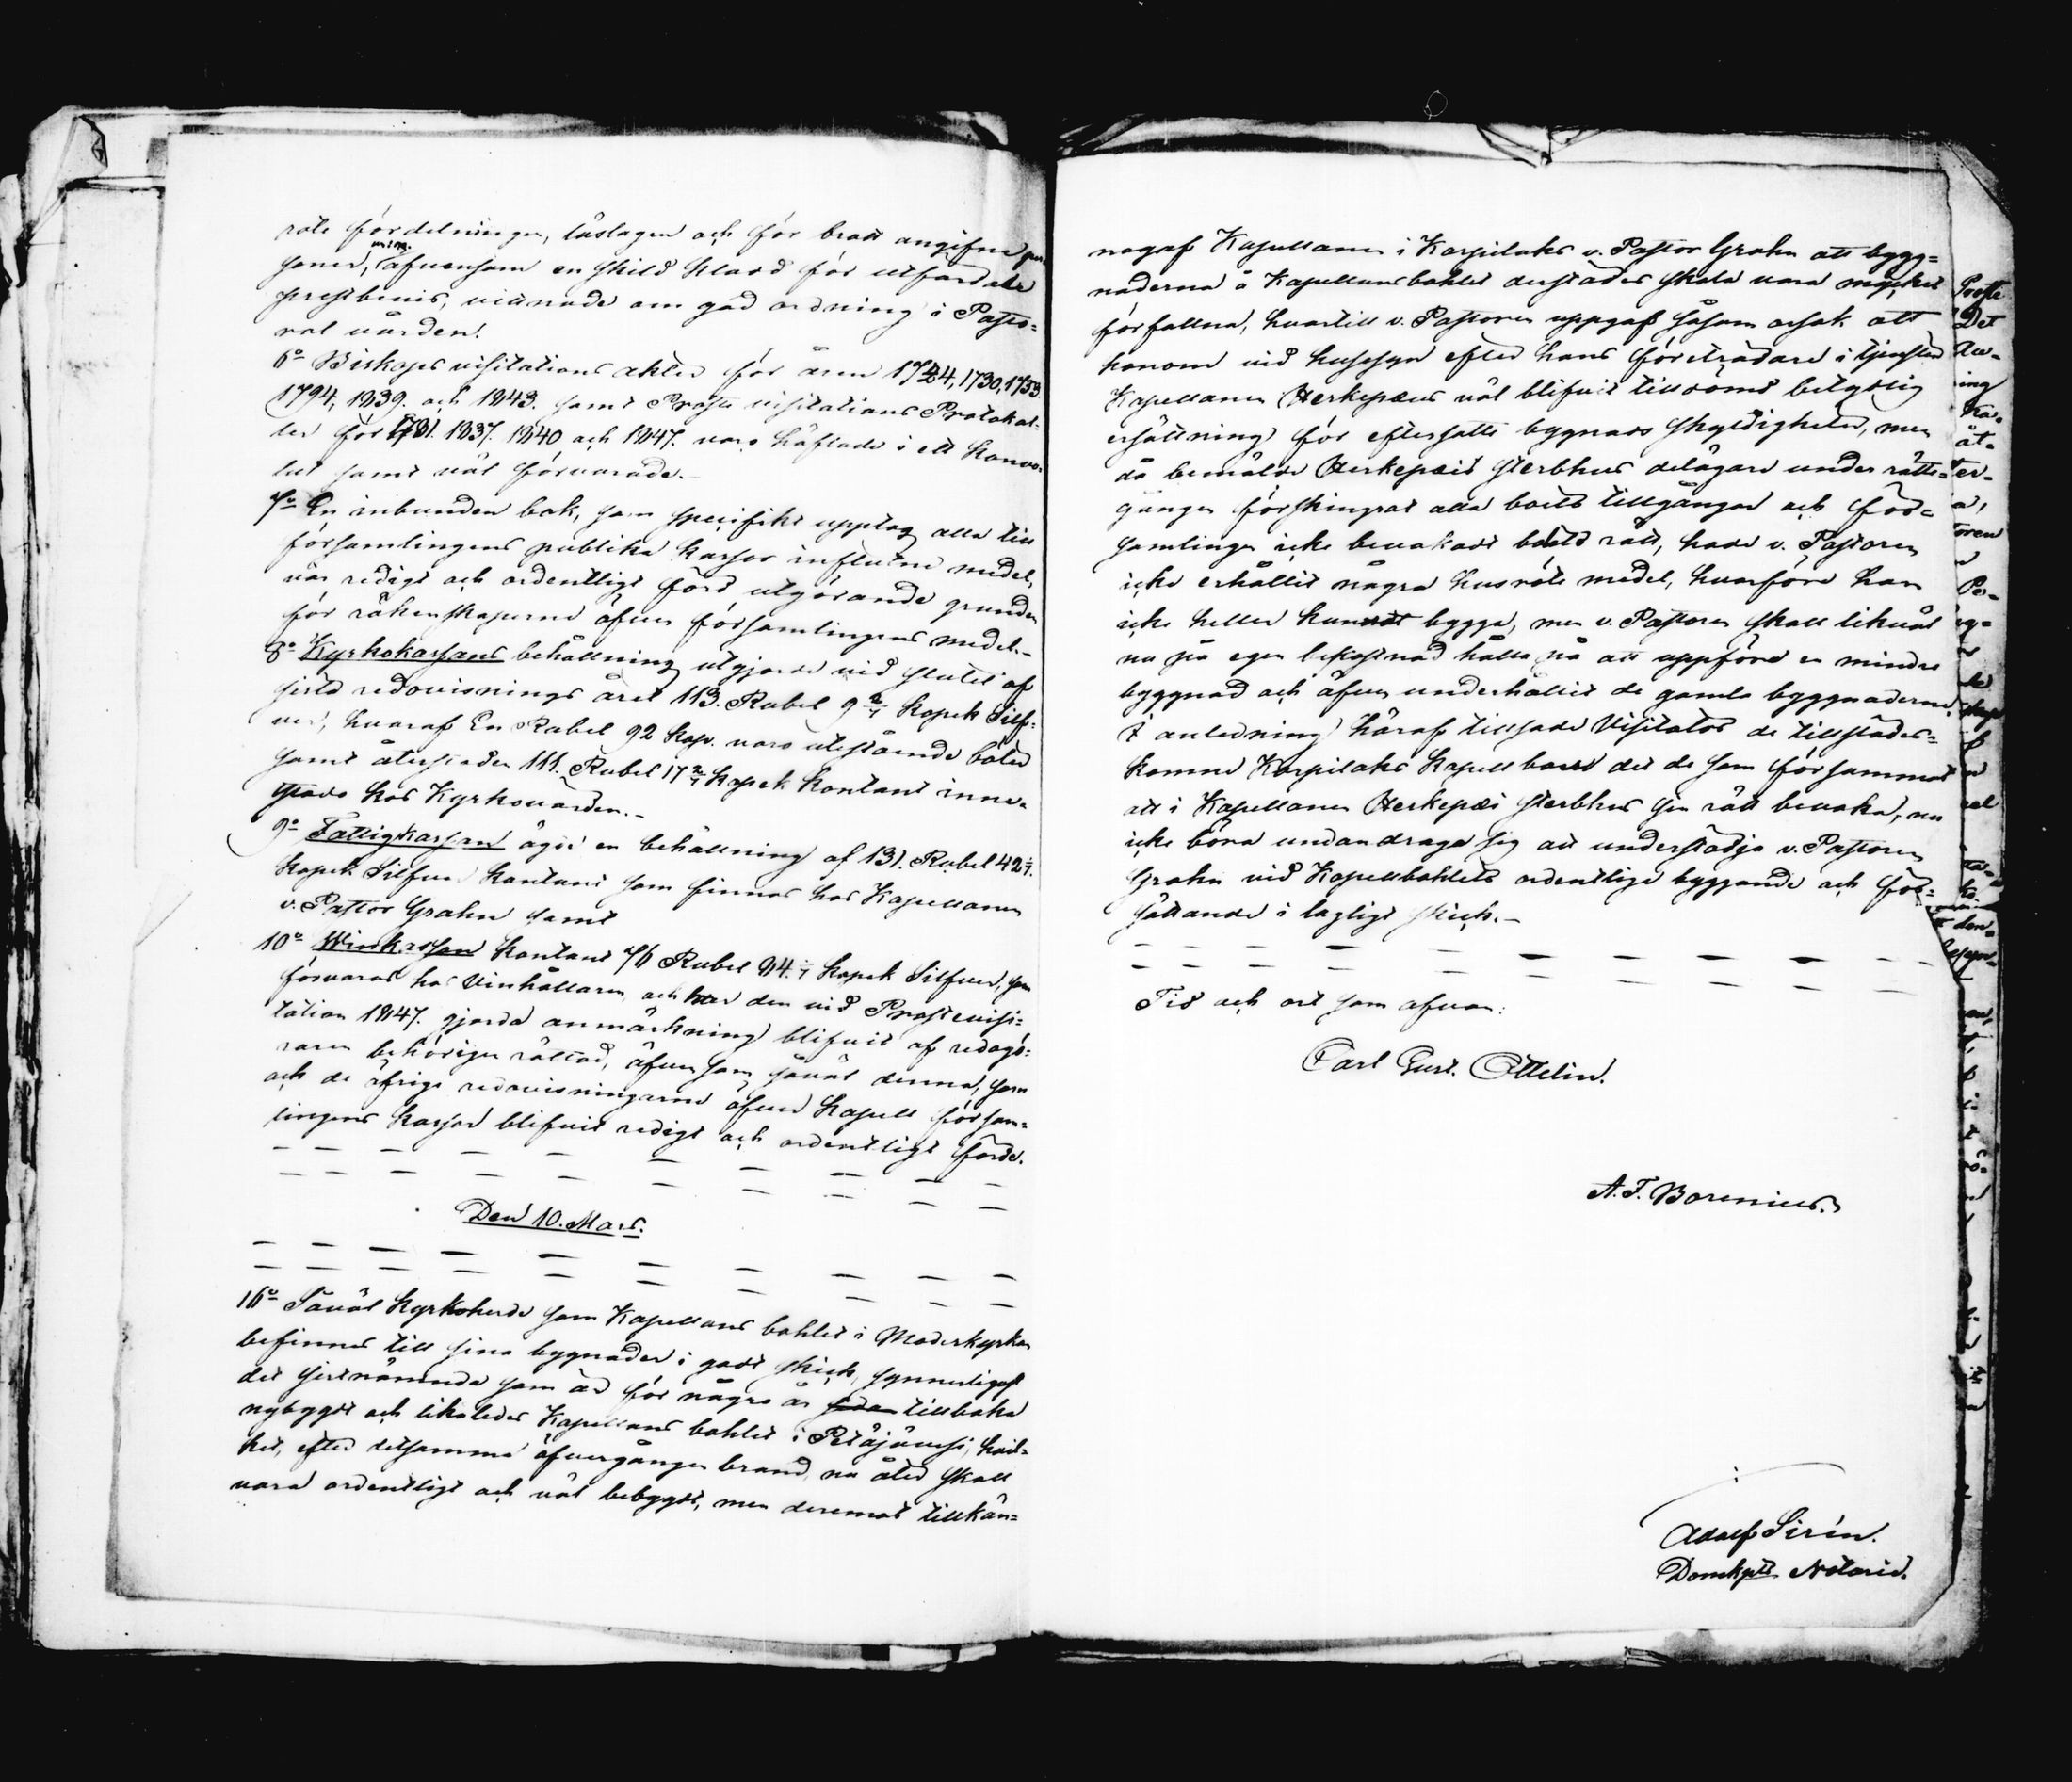 rote fördelningen, låstagen och för brott angifne per-
soner, äfvensom en skild Klad för utfärdade
prestbevis, vittnade om god ordning i Pasto=
ral vården.
6o Biskops visitations akter för åren 1724, 1730, 1753.
1794, 1839. och 1843. samt Prosts visitations Protokol-
ler för 1781. 1837. 1840 och 1847. voro häftade i ett konvo-
lut samt väl förvarade.-
7o En inbunden bok, som specifikt upptog alla till
församlingens publika kassor influtne medel,
var redigt och ordentligt förd utgörande grunden
för räkenskaperne öfver församlingens medel.-
8o Kyrkokassans behållning utgjorde vid slutet af
sista redovisnings året 113. Rubel 9 2/7 kopek Silf-
ver, hvaraf En Rubel 92 kop. voro utestående böter
samt återstoden 111. Rubel 17 2/7 kopek kontant inne-
stodo hos Kyrkovärden.-
9o Fattigkassan ägde en behållning af 131. Rubel 42
kopek Silfver kontant som finnas hos Kapellanen
v. Pastor Grahn samt
10o Winkassan kontant 76 Rubel 84. kopek Silfver, som
förvaras hos Vinhållaren, och har den vid Prostevisi=
tation 1847. gjorda anmärkning blifvit af redogö=
raren behörigen rättad, äfvensom såväl denna, som
och de öfriga redovisningarne öfver Kapell försam=
lingens kassor blifvit redigt och ordentligt förde.
Den 10. Mars.
16o Såväl Kyrkoherde som Kapellans bohlet i Moderkyrkan
befinnes till sina bygnader i godt skick, synnerligast
det sistnämnda som är för några år sedan tillbaka
nybygdt och likaledes Kapellans bohlet i Petäjävesi, hvil=
ket, efter detsamma öfvergången brand, nu åter skall
vara ordentligt och väl bebygdt, men deremot tillkän=
nagaf Kapellanen i Korpilaks v. Pastor Grahn att bygg=
naderna å Kapellansbohlet derstädes skola vara mycket
förfallna, hvartill v. Pastoren uppgaf såsom orsak att
honom vid husesyn efter hans företrädare i tjensten
Kapellanen Herkepæus väl blifvit tilldömd betydlig
ersättning för eftersatte bygnads skyldigheter, men
då bemälde Herkepæi sterbhus delägare under rätte=
gången förskingrat alla boets tillgångar och För=
samlingen icke bevakadt boets rätt, hade v. Pastoren
icke erhållit några husröte medel, hvarföre han
icke heller kunnat bygga, men v. Pastoren skall likväl
nu på egen bekostnad hålla på att uppföra en mindre
byggnad och äfven underhållit de gamla byggnaderne.
I anledning häraf tillsade Visitator de tillstädes=
komne Korpilaks Kapellboer det de som försummat
att i Kapellanen Herkepæi sterbhus sin rätt bevaka, nu
icke böra undandraga sig att understödja v. Pastoren
Grahn vid Kapellbohlets ordentliga byggande och för=
sättande i lagligt skick.-
Tid och ort som ofvan:
Carl Gust. Ottelin.
A. F. Borenius.
Adolf Sirén.
Domkpts Notarie.